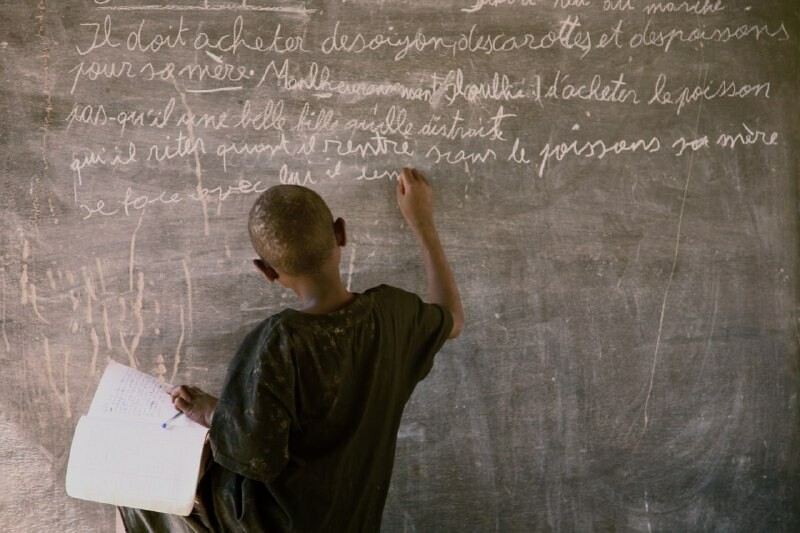 au marché
Il doit acheter desoiyon, descarottes, et despoissons
pour sa mère. d'acheter le poisson
pas-qu'il une belle fille qu'elle distraite
qui il rites quant il rentre sans le poissons sa mère
se face avec lui il